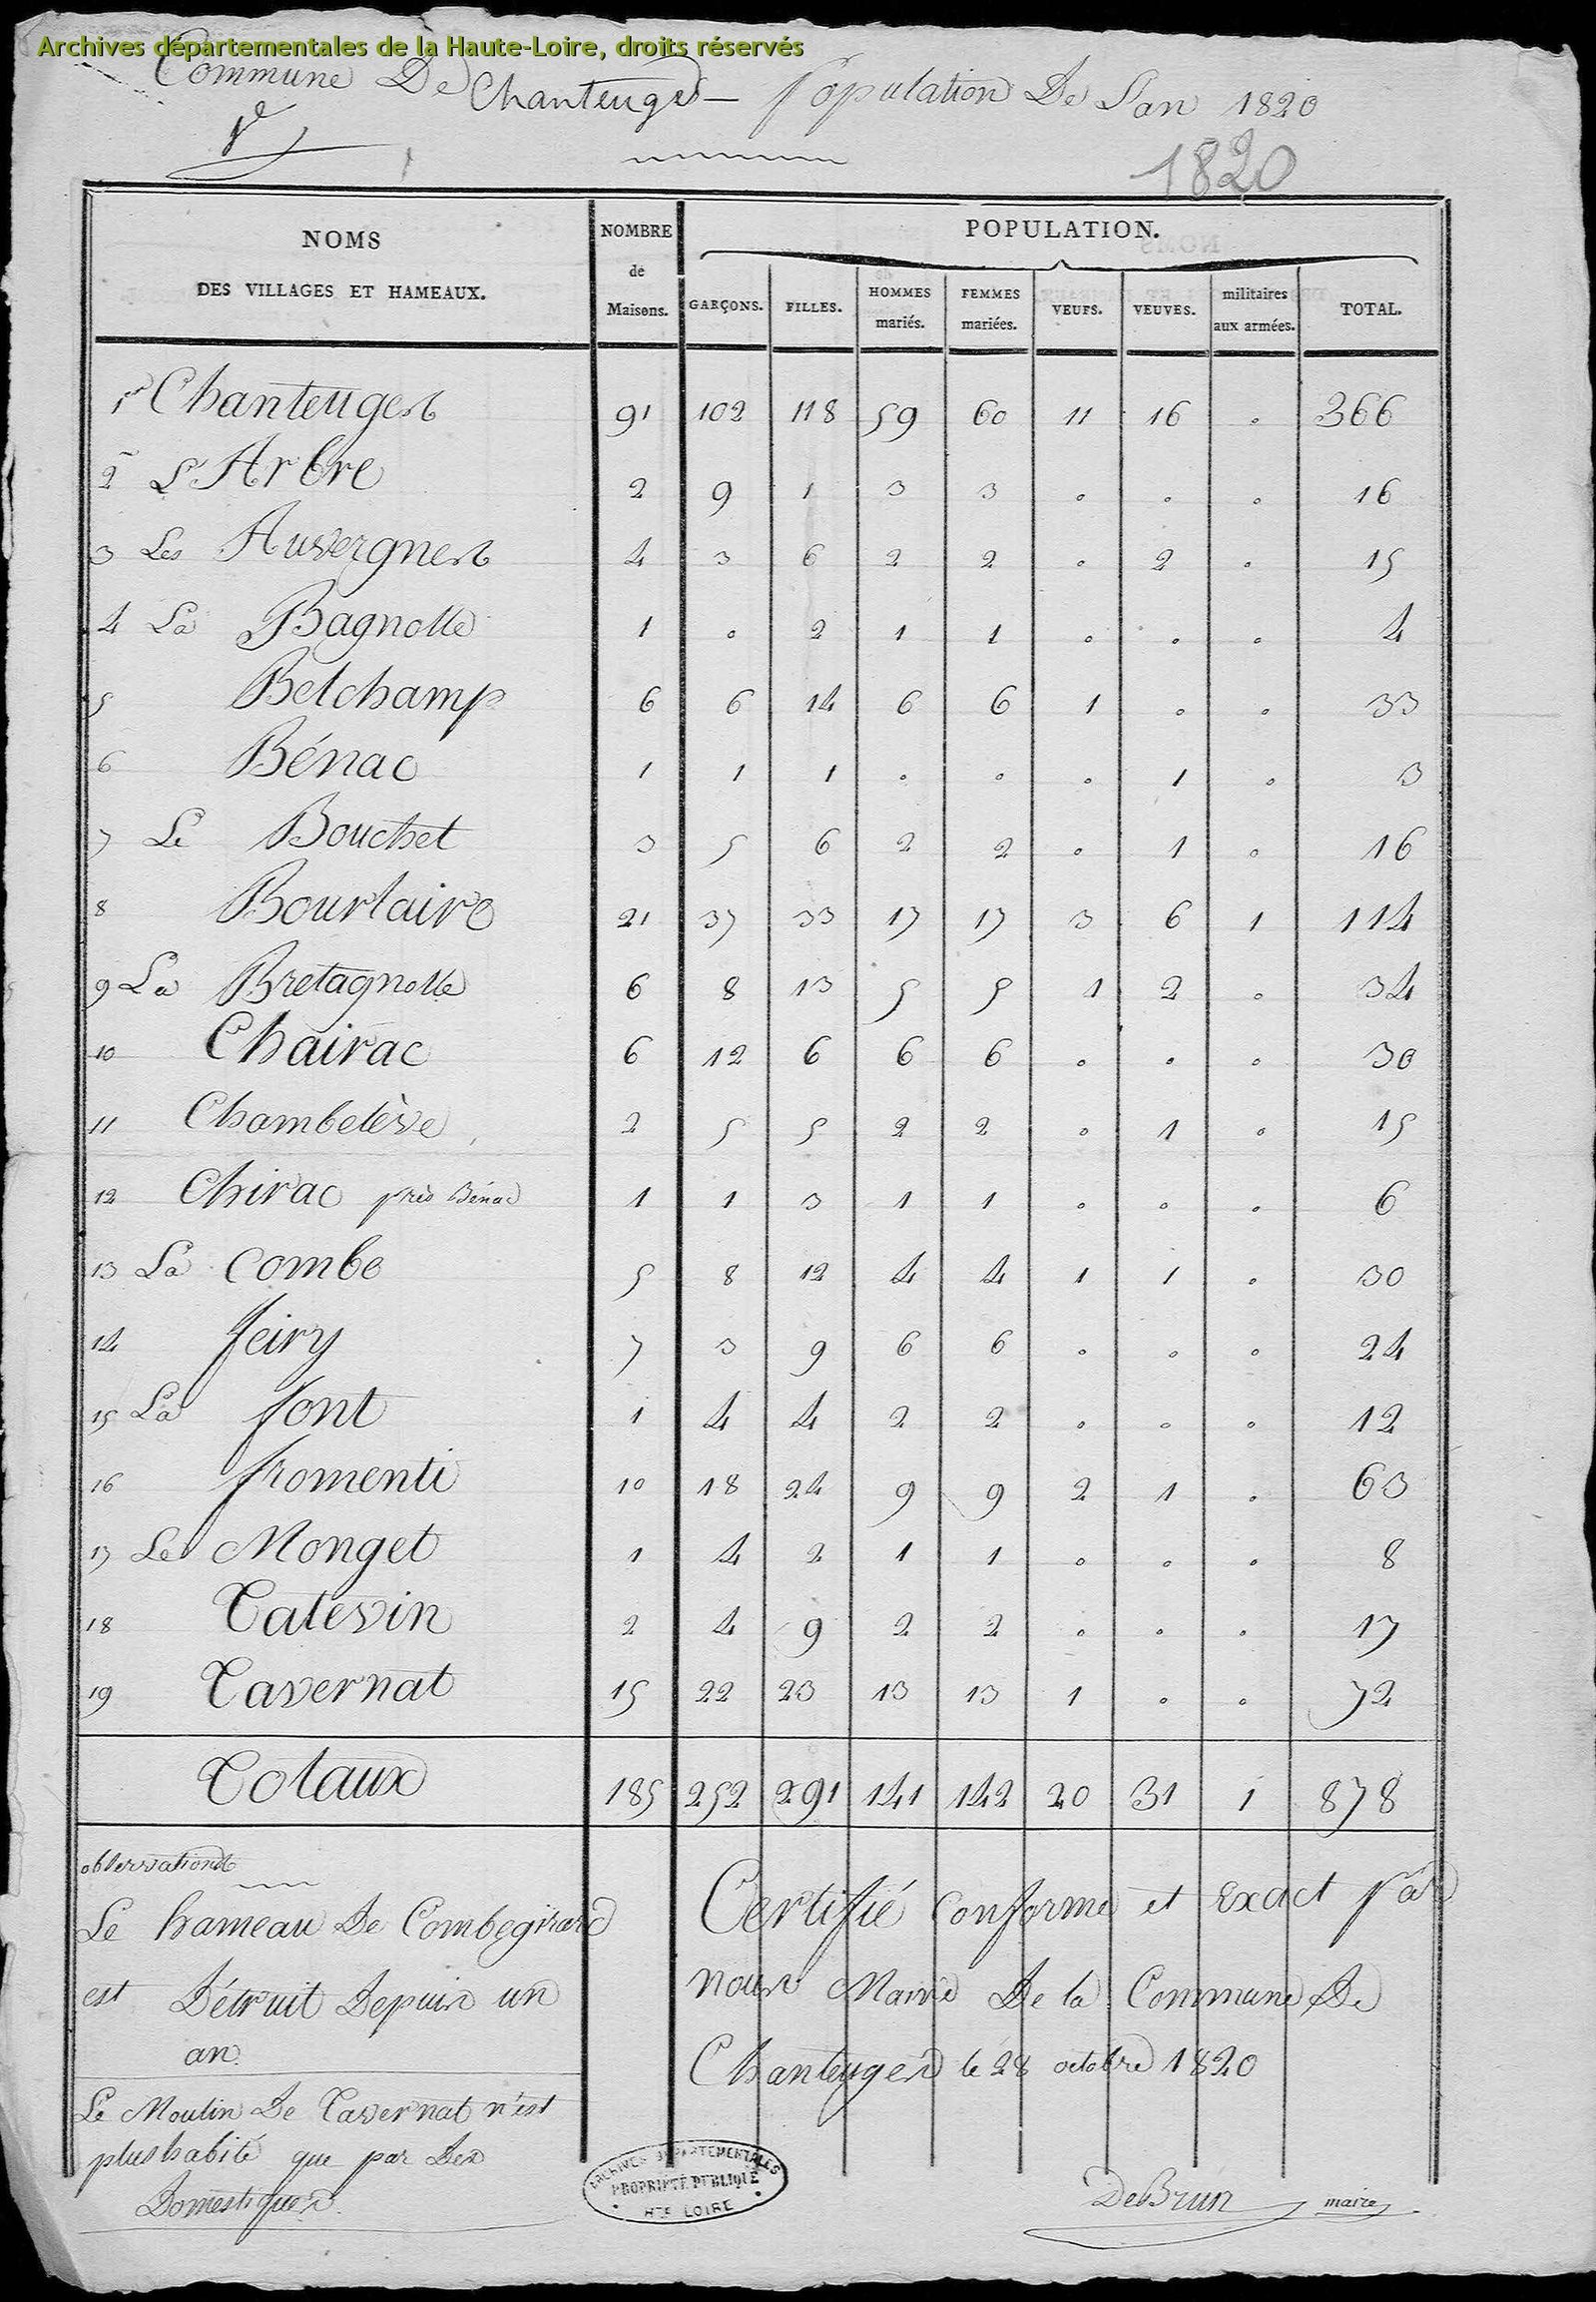 Archives départementales de la Haute-Loire, droits réservés
Commune De Chanteuges — Population De L'an 1820
1820
NOMS DES VILLAGES ET HAMEAUX. NOMBRE de Maisons. POPULATION.
GARÇONS. FILLES. HOMMES mariés. FEMMES mariées. VEUFS. VEUVES. militaires aux armées. TOTAL.
1er Chanteuges 91 102 118 59 60 11 16 . 366
2 L'Arbre 2 9 1 3 3 . . . 16
3 Les Auvergnes 4 3 6 2 2 . 2 . 15
4 La Bagnolle 1 . 2 1 1 . . . 4
5 Belchamp 6 6 14 6 6 1 . . 33
6 Bénac 1 1 1 . . . 1 . 3
7 Le Bouchet 3 5 6 2 2 . 1 . 16
8 Bourlaire 21 37 33 17 17 3 6 1 114
9 La Bretagnolle 6 8 13 5 5 1 2 . 34
10 Chairac 6 12 6 6 6 . . . 30
11 Chambelève 2 5 5 2 2 . 1 . 15
12 Chirac près Bénac 1 1 3 1 1 . . . 6
13 La Combe 5 8 12 4 4 1 1 . 30
14 feiry 7 3 9 6 6 . . . 24
15 La font 1 4 4 2 2 . . . 12
16 fromenti 10 18 24 9 9 2 1 . 63
17 Le Monget 1 4 2 1 1 . . . 8
18 Talevin 2 4 9 2 2 . . . 17
19 Tavernat 15 22 23 13 13 1 . . 72
Totaux 185 252 291 141 142 20 31 1 878
observations
Le hameau De Combegirard
est Détruit Depuis un
an
Le Moulin De Tavernat n'est
plus habité que par Des
Domestiques.
Certifié Conforme et Exact par
nous Maire De la Commune De
Chanteuges le 28 octobre 1820
DeBrun maire
ARCHIVES DÉPARTEMENTALES
PROPRIÉTÉ PUBLIQUE
HTE LOIRE